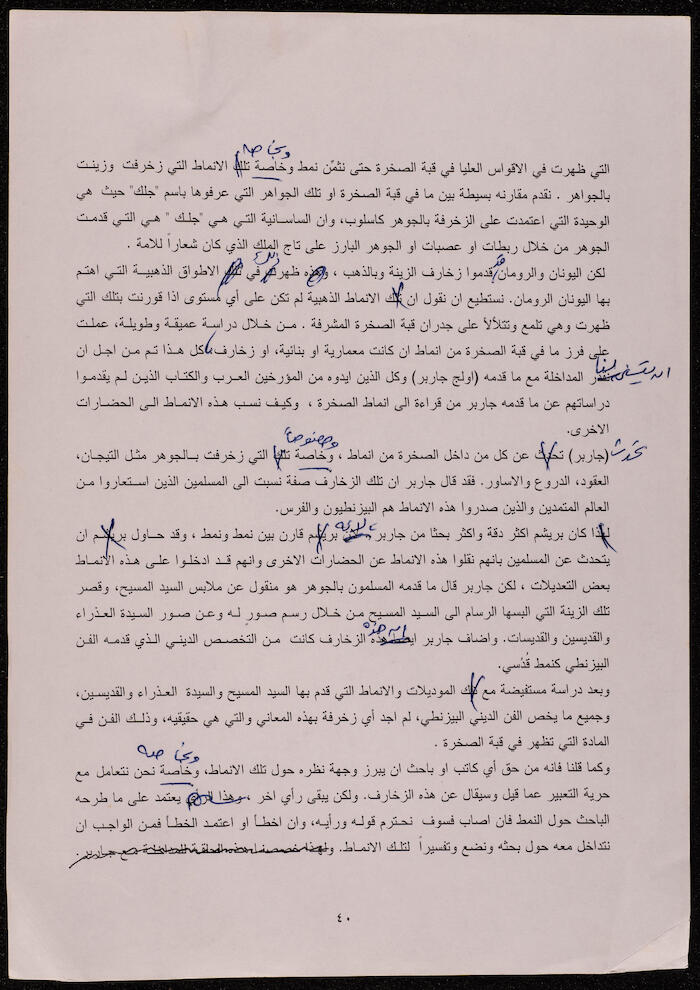 وبخاصة
التي ظهرت في الاقواس العليا في قبة الصخرة حتى نثمّن نمط وخاصة تلك الانماط التي زخرفت وزينت
بالجواهر . نقدم مقارنه بسيطة بين ما في قبة الصخرة او تلك الجواهر التي عرفوها باسم "جلك" حيث هي
الوحيدة التي اعتمدت على الزخرفة بالجوهر كاسلوب، وان الساسانية التي هي "جلك " هي التي قدمت
الجوهر من خلال ربطات او عصبات او الجوهر البارز على تاج الملك الذي كان شعاراً للامة .
لكن اليونان والرومان قدموا زخارف الزينة وبالذهب ، وهذه ظهرت في تلك الاطواق الذهبية التي اهتم
بها اليونان الرومان. نستطيع ان نقول ان تلك الانماط الذهبية لم تكن على أي مستوى اذا قورنت بتلك التي
ظهرت وهي تلمع وتتلألأ على جدران قبة الصخرة المشرفة . من خلال دراسة عميقة وطويلة، عملت
على فرز ما في قبة الصخرة من انماط ان كانت معمارية او بنائية، او زخارف كل هذا تم من اجل ان
المداخلة مع ما قدمه (اولج جاربر) وكل الذين ايدوه من المؤرخين العرب والكتاب الذين لم يقدموا
دراساتهم عن ما قدمه جاربر من قراءة الى انماط الصخرة ، وكيف نسب هذه الانماط الى الحضارات
الاخرى.
وخصوصاً
تحدث (جاربر) تحدث عن كل من داخل الصخرة من انماط ، وخاصة تلك التي زخرفت بالجوهر مثل التيجان،
العقود، الدروع والاساور. فقد قال جاربر ان تلك الزخارف صفة نسبت الى المسلمين الذين استعاروا من
العالم المتمدين والذين صدروا هذه الانماط هم البيزنطيون والفرس.
لهذا كان بريشم اكثر دقة واكثر بحثا من جاربر، لانه بريشم قارن بين نمط ونمط ، وقد حاول بريشم ان
يتحدث عن المسلمين بانهم نقلوا هذه الانماط عن الحضارات الاخرى وانهم قد ادخلوا على هذه الانماط
بعض التعديلات ، لكن جاربر قال ما قدمه المسلمون بالجوهر هو منقول عن ملابس السيد المسيح، وقصر
تلك الزينة التي البسها الرسام الى السيد المسيح من خلال رسم صور له وعن صور السيدة العذراء
والقديسين والقديسات. واضاف جاربر ان هذه الزخارف كانت من التخصص الديني الذي قدمه الفن
البيزنطي كنمط قُدْسي.
وبعد دراسة مستفيضة مع تلك الموديلات والانماط التي قدم بها السيد المسيح والسيدة العذراء والقديسين،
وجميع ما يخص الفن الديني البيزنطي، لم اجد أي زخرفة بهذه المعاني والتي هي حقيقيه، وذلك الفن في
المادة التي تظهر في قبة الصخرة .
وبخاصه
وكما قلنا فانه من حق أي كاتب او باحث ان يبرز وجهة نظره حول تلك الانماط، وخاصة نحن نتعامل مع
حرية التعبير عما قيل وسيقال عن هذه الزخارف. ولكن يبقى رأي اخر ، وهذا يعتمد على ما طرحه
الباحث حول النمط فان اصاب فسوف نحترم قوله ورأيه، وان اخطأ او اعتمد الخطأ فمن الواجب ان
نتداخل معه حول بحثه ونضع وتفسيراً لتلك الانماط. ولهذا خصصنا هذه الحلقة المداخلة مع جاربر.
٤٠